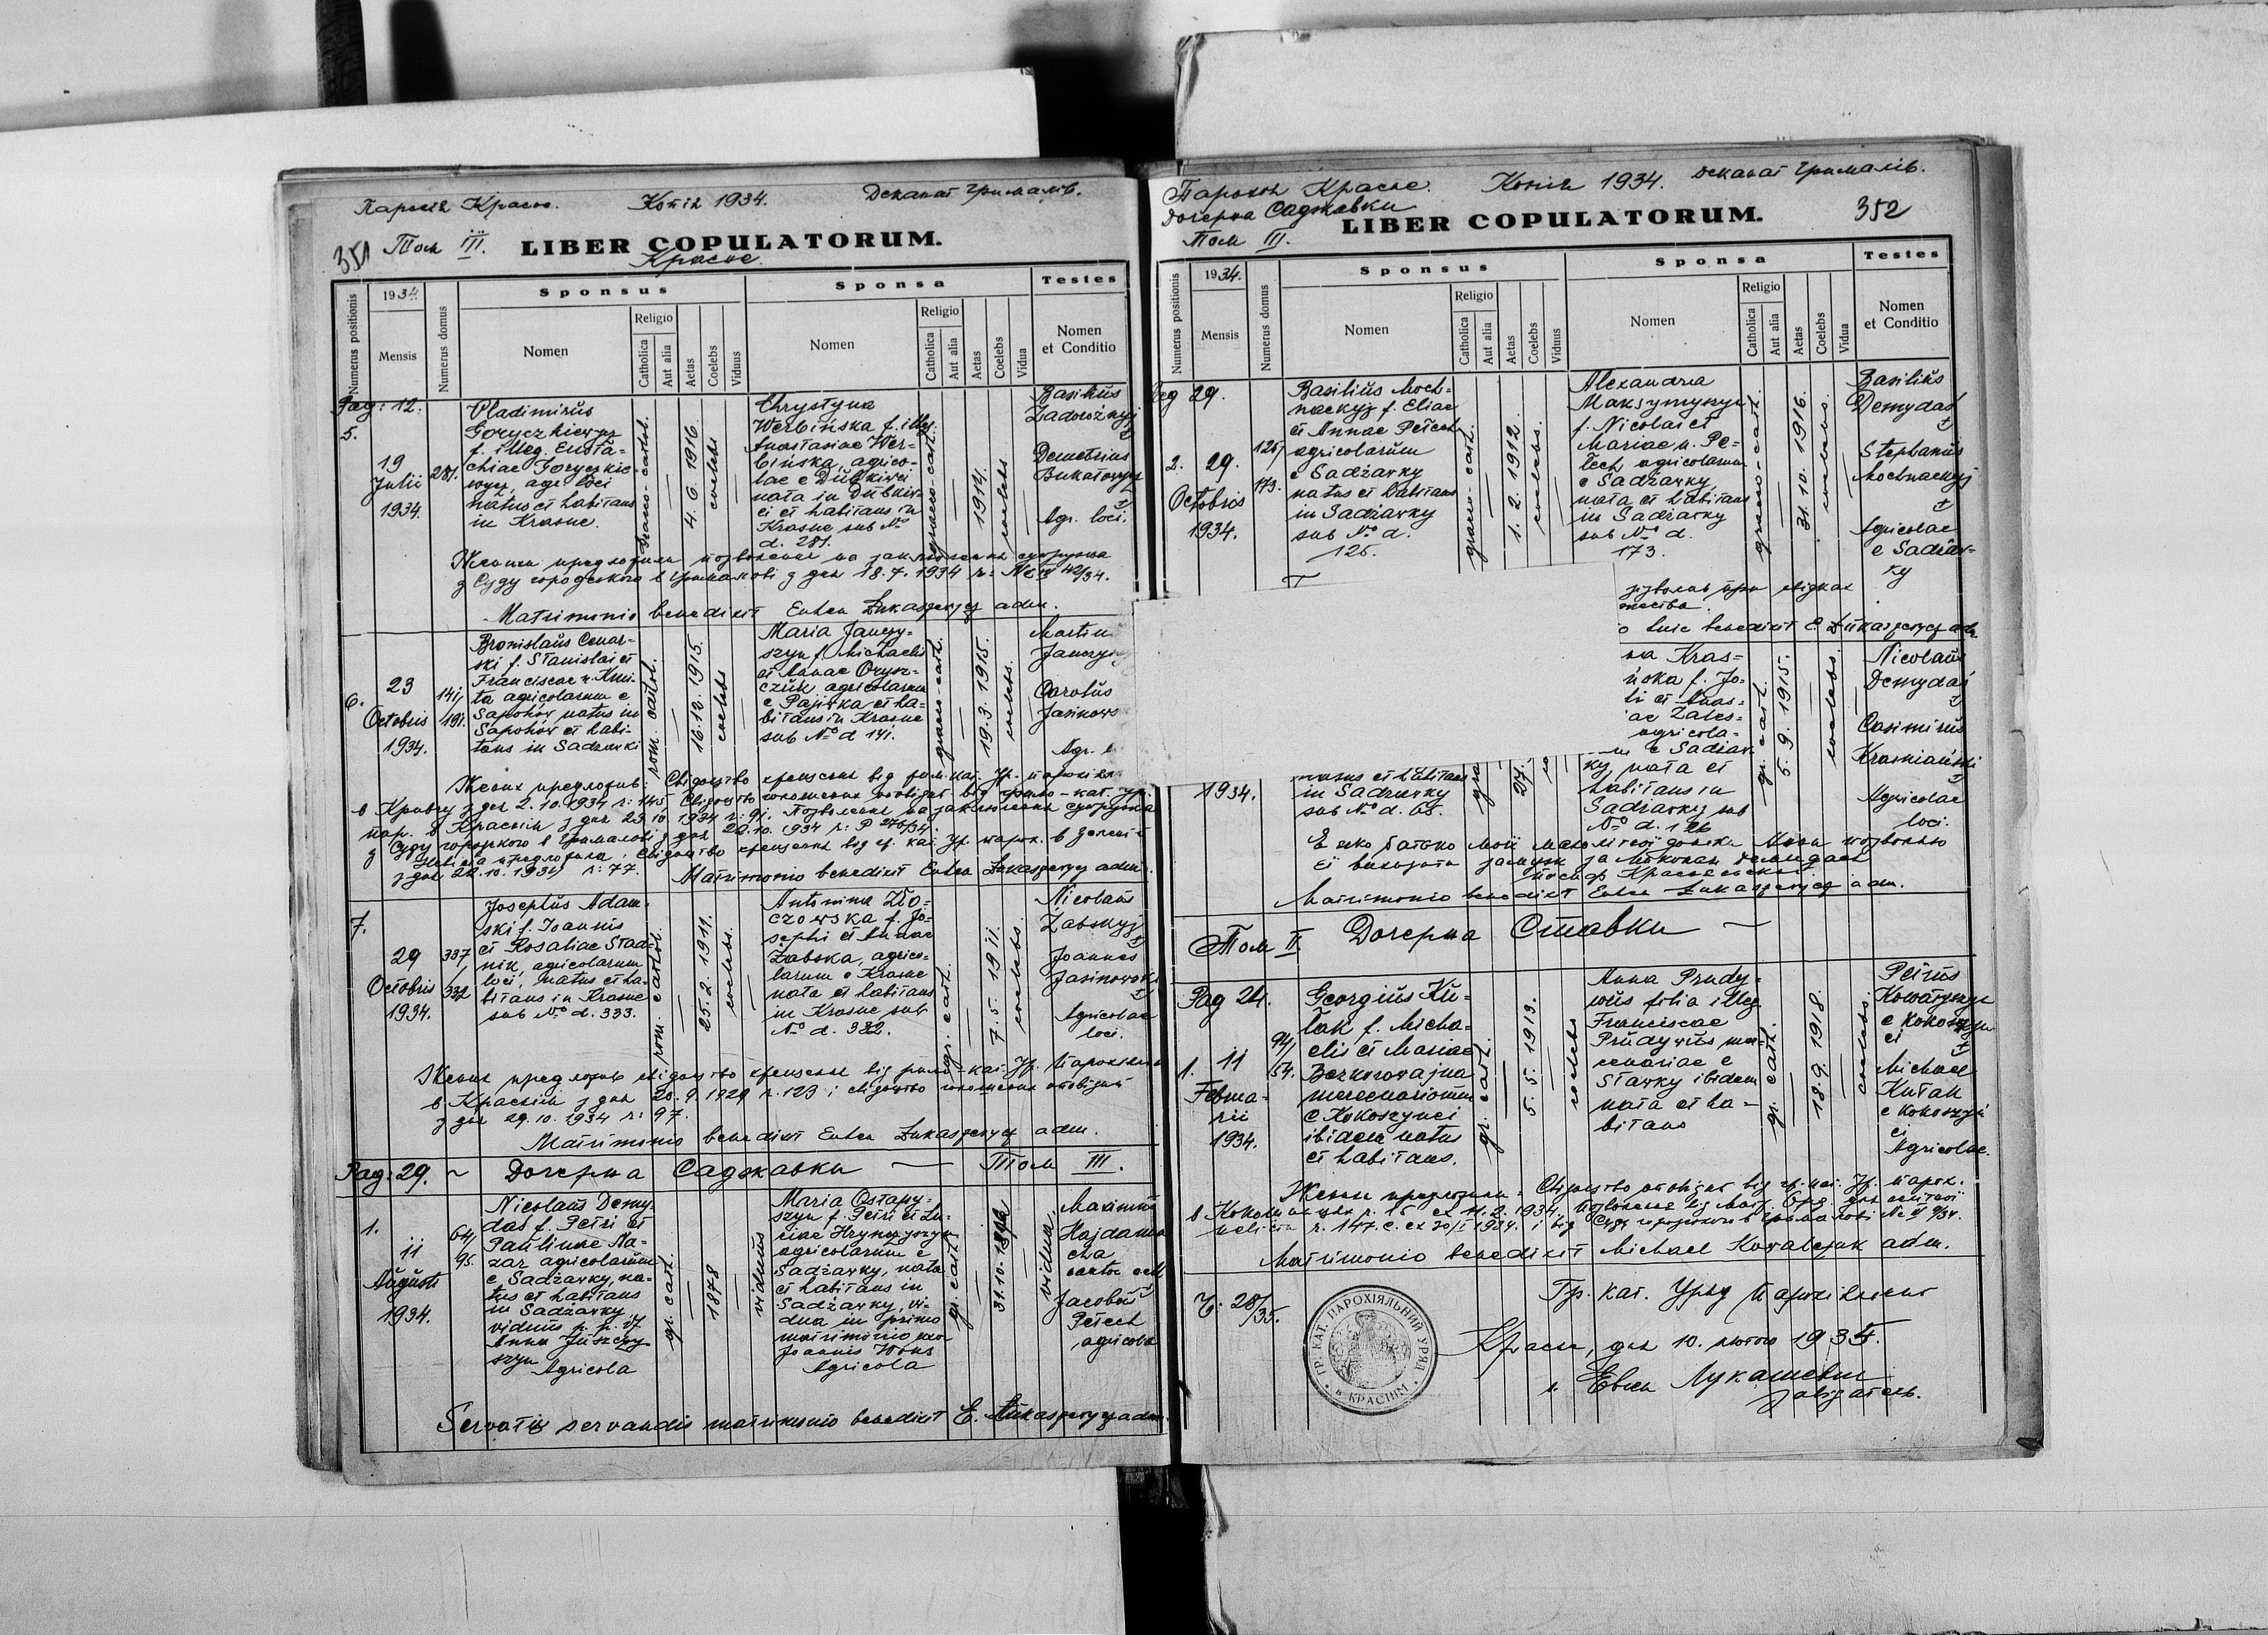 Парохія Красне. Копія 1934. Деканат Грималів.
351 Том III. LIBER COPULATORUM.
Красне.
Numerus positionis
1934.
Mensis
Numerus domus
Sponsus
Nomen
Religio
Catholica
Aut alia
Aetas
Coelebs
Viduus
Sponsa
Nomen
Religio
Catholica
Aut alia
Aetas
Coelebs
Vidua
Testes
Nomen
et Conditio
Pag: 12.
5.
19
Julii
1934.
281.
Vladimirus
Goryczkiewycz
f. illeg. Eusta-
chiae Goryczkie-
wycz, agr. loci
natus et habitans
in Krasne.
graeco-cathol.
4. 6. 1916.
coelebs
Chrystyna
Werbinska f. illeg.
Anastasiae Wer-
binska, agrico-
lae e Dubkiwci
nata in Dubkiw-
ci et habitans in
Krasne sub No
d. 281.
graeco-cath.
1914.
coelebs
Basilius
Zadorożnyj
+
Demetrius
+
Agr. loci.
предложили позволення на заключення супружа
з Суду городского в Грималові з дня 18. 7. 1934 ч: Nc II 42/34.
Matrimonio benedixit Euhen Łukaszewycz adm.
6.
23
Octobris
1934.
141/
191.
Bronislaus Cenar-
ski f. Stanislai et
Franciscae n. Kmi-
ta agricolarum e
Sapohów natus in
Sapohów et habi-
tans in Sadzawki
rom. cathol.
16. 12. 1915.
coelebs
Maria Janczy-
szyn f. Michaelis
et Annae Orysz-
czuk agricolarum
e Pajówka et ha-
bitans in Krasne
sub No d 141.
graeco-cath.
19. 3. 1915.
coelebs.
Martin
Carolus
Jasinows
Agr.
Жених предложив: Свідоцтво крещення від рим. кат. Ур. парохіял
в з дня 2. 10. 1934 ч: 145. Свідоцтво оповідей від греко-кат. Ур.
пар. в Краснім з дня 23. 10. 1934 ч: 91. Позволення на заключення супружа
з Суду городского в Грималові з дня 22. 10. 1934 ч: P 276/34.
предложила: Свідоцтво крещення від гр. кат. Ур. парох. в
з дня 22. 10. 1934 ч: 77. Matrimonio benedixit Euhen Łukaszewycz adm.
7.
29
Octobris
1934.
337/
332
Josephus Adam-
ski f. Joannis
et Rosaliae Stad-
nik, agricolarum
loci, natus et ha-
bitans in Krasne
sub No d. 333.
rom. cathol.
25. 2. 1911.
coelebs.
Antonina Zło-
czowska f. Jo-
sephi et Annae
Żabska, agrico-
larum e Krasne
nata et habitans
in Krasne sub
No d. 332.
gr. cath.
7. 5. 1911.
coelebs.
Nicolaus
Żabskyj
+
Joannes
Jasinowski
+
Agricolae
loci.
Жених предложив свідоцтво крещення від римо-кат. Ур. Парохіяльн
в Краснім з дня 20. 9. 1929 ч. 123 і свідоцтво оповідей
з дня 29. 10. 1934 ч: 97.
Matrimonio benedixit Euhen Łukaszewycz adm.
Pag: 29. ~ Дочерна Саджавки — Том III.
1.
11
Augusti
1934.
64/
95.
Nicolaus Demy-
das f. Petri et
Paulinae Na-
zar agricolarum
e Sadżawky, na-
tus et habitans
in Sadżawky,
viduus p.
Anna Juszczy-
szyn
Agricola
gr. cath.
1878
viduus
Maria Ostapy-
szyn f. Petri et Lu-
ciae Hrynczyszyn
agricolarum e
Sadżawky, nata
et habitans in
Sadżawky, vi-
dua in primo
matrimonio
Joannis
Agricola
gr. cath.
31. 10.
vidua.
Maximus
Hajdama
cha
cantor
+
Jacobus
Petech
agricola
Servatis servandis matrimonio benedixit E. Łukaszewycz adm.
Парохія Красне. Копія 1934. Деканат Грималів.
Дочерна Саджавки
LIBER COPULATORUM. 352
Том III.
Numerus positionis
1934.
Mensis
Numerus domus
Sponsus
Nomen
Religio
Catholica
Aut alia
Aetas
Coelebs
Viduus
Sponsa
Nomen
Religio
Catholica
Aut alia
Aetas
Coelebs
Vidua
Testes
Nomen
et Conditio
Pag 29.
2.
29.
Octobris
1934.
125/
173.
Basilius Moch-
nackyj f. Eliae
et Annae Petech
agricolarum
e Sadżawky
natus et habitans
in Sadżawky
sub No d.
125.
graeco-cath.
1. 2. 1912.
coelebs.
Alexandra
Maksymyszyn
f. Nicolai et
Mariae n. Pe-
tech agricolarum
e Sadżawky,
nata et habitans
in Sadżawky
sub No d.
173.
graeco-cath.
31. 10. 1916.
coelebs.
Basilius
Demydas
+
Stephanus
Mochnackyj
+
Agricolae
e Sadżaw-
ky
при свідках
o huic benedixit E Łukaszewycz adm
1934.
natus et habitans
in Sadzawky
sub No d. 65.
27.
na Kras-
ńska f. Jo-
hi et Anas-
ae Zales-
agricola-
e Sadżaw
ky nata et
habitans in
Sadżawky sub
No d. 126
gr. cath.
5. 9. 1915.
coelebs.
Nicolaus
Demydas
+
Casimirus
Krasniański
+
Agricolae
loci.
Я яко батько моїй малолітної доньки Анни позволяю
єї виходити замуж за Миколая Демидася
Йосиф
Matrimonio benedixit Euhen Łukaszewycz adm.
Том II. Дочерна Ставки —
Pag 24.
1.
11
Februa-
rii
1934.
94/
54.
Georgius Ku-
tak f. Micha-
elis et Mariae
Bezkorowajna
mercenariorum
e Kokoszynci
ibidem natus
et habitans.
gr. cath.
5. 5. 1913.
coelebs
Anna Prudy-
wus filia illeg.
Franciscae
Prudywus mer-
cenariae e
Stawky ibidem
nata et ha-
bitans
gr. cath.
18. 9. 1918.
coelebs.
Petrus
Kowatyszyn
e Kokoszyn
ci +
Michael
Kutak
e Kokoszyn
ci
Agricolae.
Жених предложили: Свідоцтво оповідей від гр. кат. Ур. парох.
в Кокошинцях ч. 15 ex 11. 2. 1934. Позволення від
ч. 147. c. ex 30/I 1934. і від Суду городского в Грималові Nc II 9/34.
Matrimonio benedixit Michael Kowalczuk adm.
Ч: 28/35.
ГР. КАТ. ПАРОХІЯЛЬНИЙ УРЯД
в КРАСНІМ
Гр. кат. Уряд Парохіяльний
Красне, дня 10. лютого 1935.
о. Евген Лукашевич
завідатель.